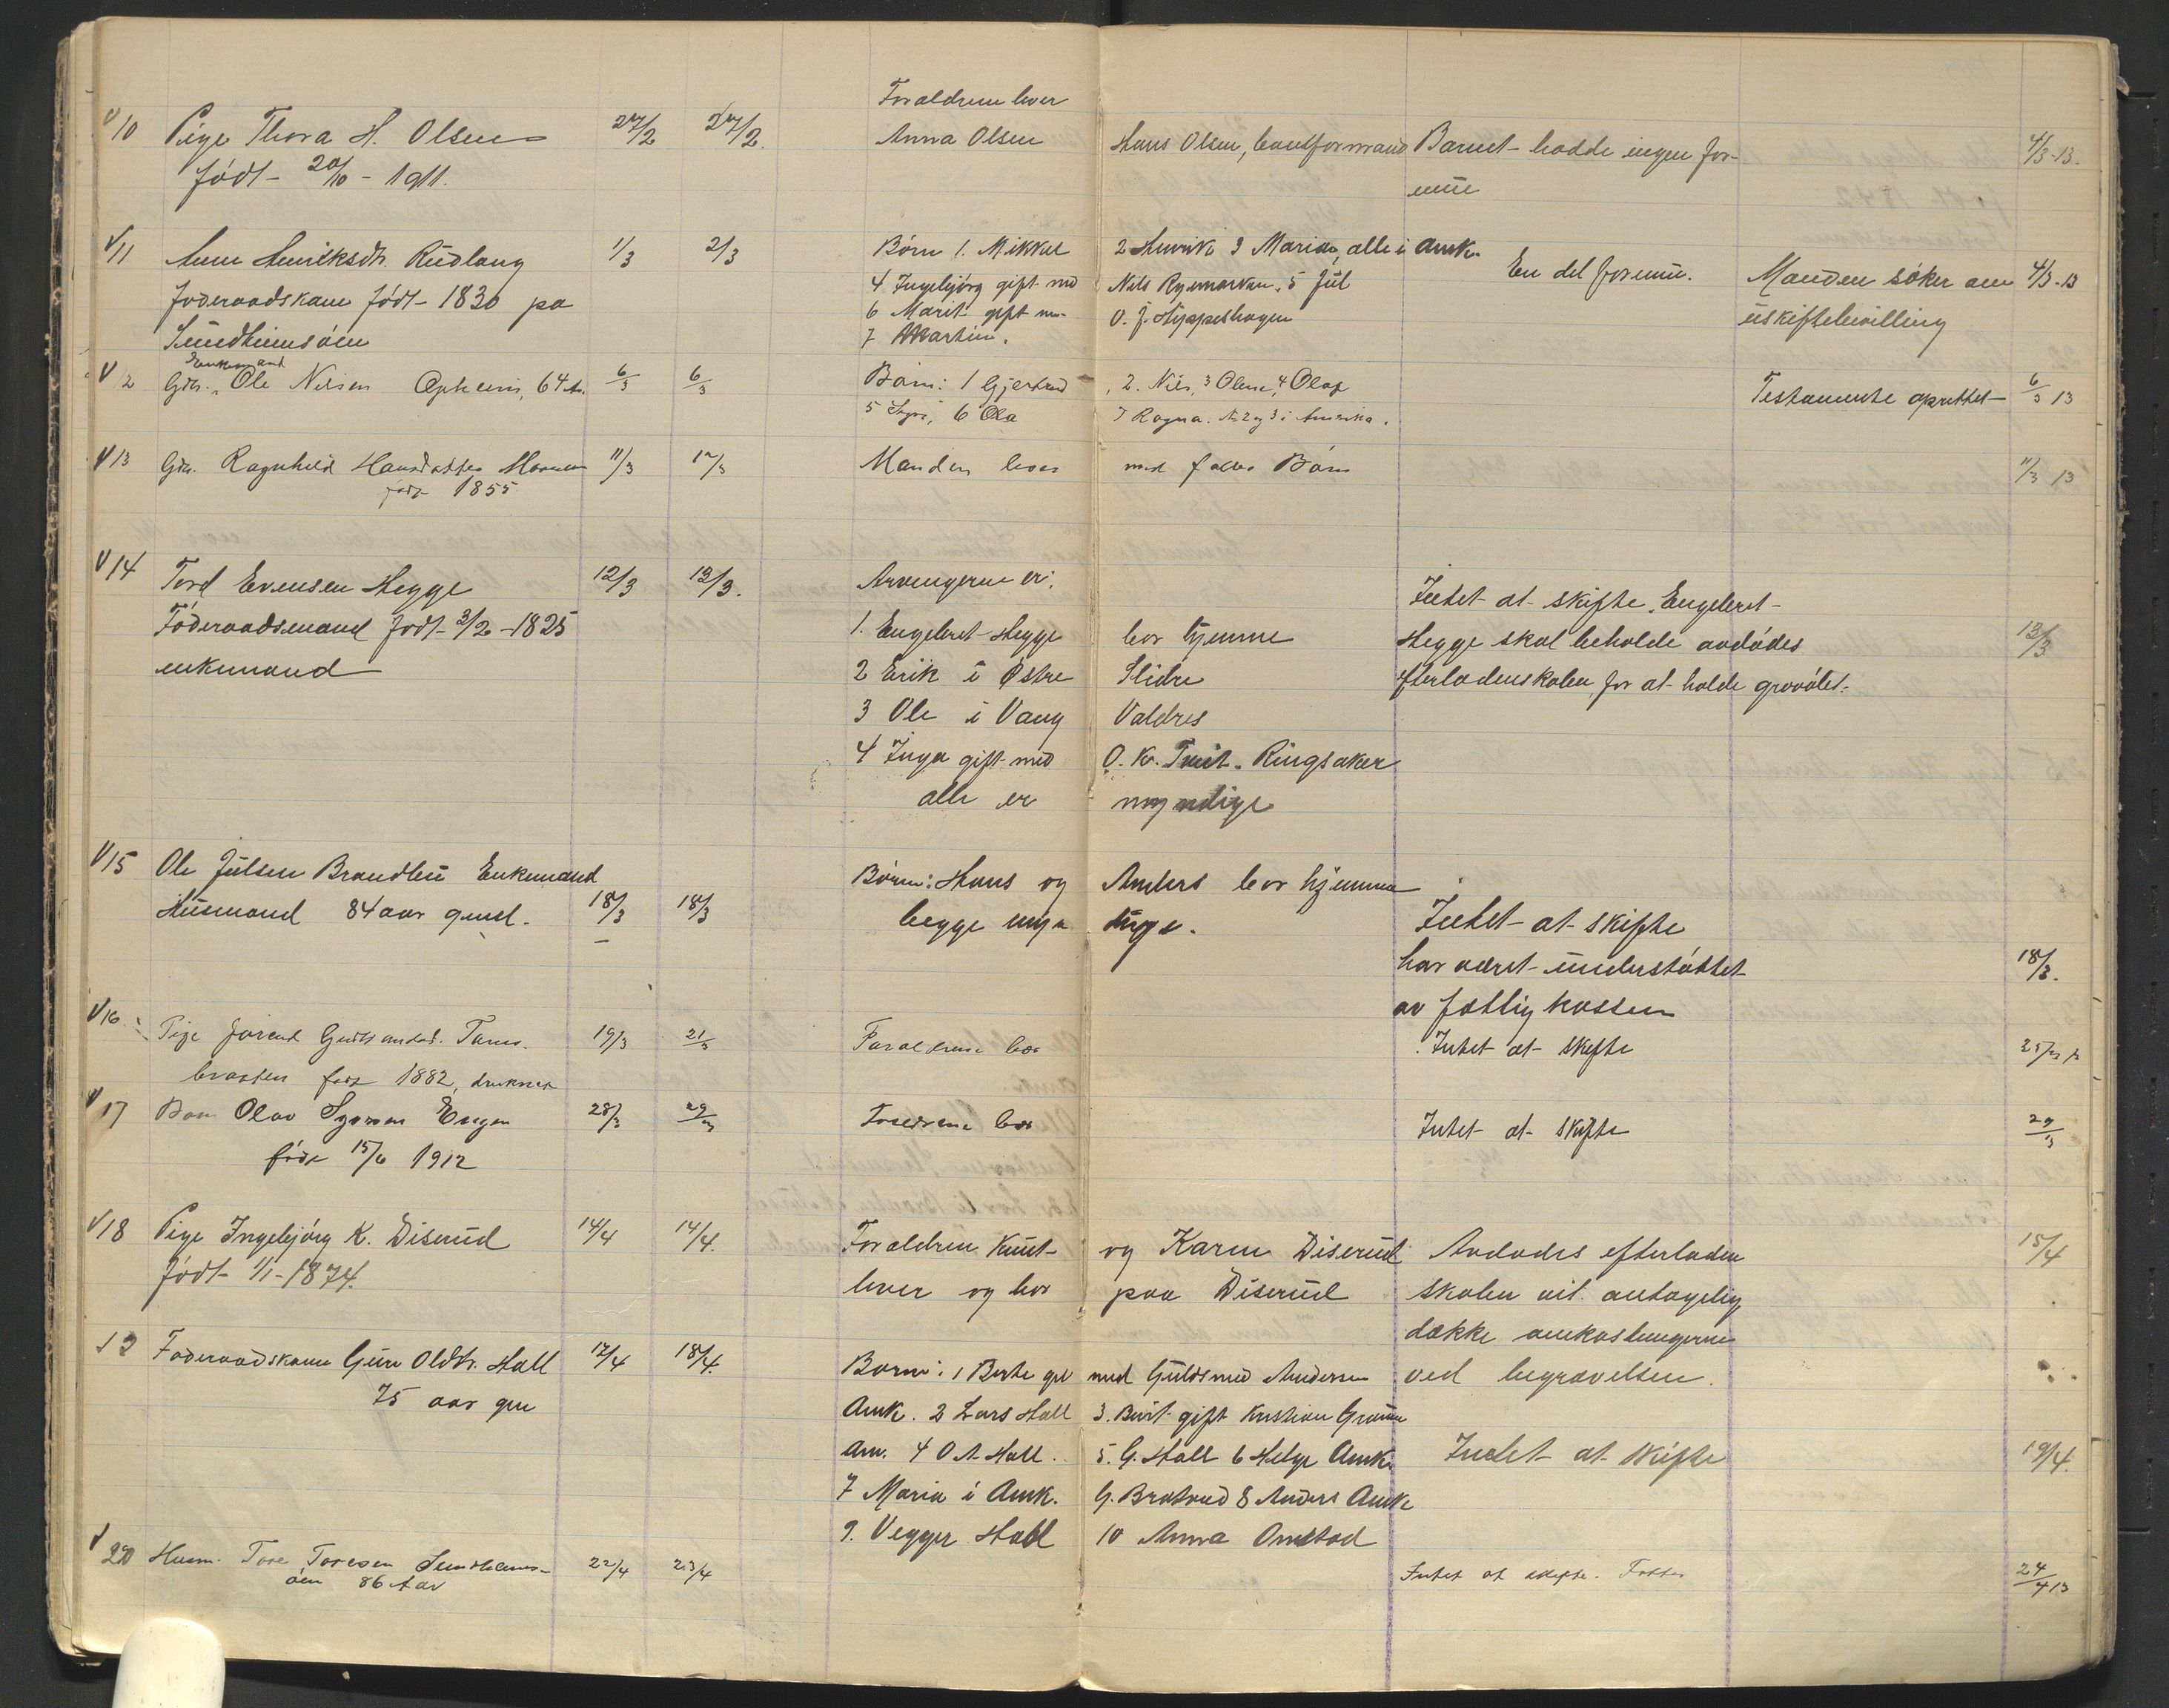 Foraldrene lever
V 10 Pige Thora H. Olsen 27/2 27/2. Anna Olsen Hans Olsen, baneformand Barnet hadde ingen for- 4/3-13.
født 20/10 - 1911. mue
V 11 Anne Henriksdtr. Rudlang 1/3 2/3 Børn 1. Mikkel 2 Henrik 3 Marian, alle i Amk.
Føderaadskane født 1830 pa 4 Ingebjørg gift med Nils Ryemarken. 5 Jul En del formue. Manden søker om 4/3-13
Sundheimsøen 6 Marit gift m. O. J. uskiftebevilling
7 Martin.
V 12 Gdr. Enkemand Ole Nilsen Opheim, 64 Ar. 6/3 6/3 Børn: 1 Gjertrud, 2. Nils, 3 Olene, 4 Olaf Testamente oprettet 6/3 13
5 6 Ola 7 Ragna. No 2 og 3 i Amerika.
V 13 Gdr. Ragnhild Hansdatter 11/3 12/3 Manden lever med fælles Børn 11/3 13
født 1855
V 14 Tord Evensen Hegge 12/3 12/3. Arvingerne er:
Føderaadsmand født 3/2-1825 1. Engebret Hegge bor hjemme Intet at skifte. Engebret
enkemand 2 Erik i Østre Slidre Hegge skal beholde avdødes 12/3
3 Ole i Vang Valdres efterladenskaber for at holde gravølet.
4 Inga gift med O. Kr. Tveit. Ringsaker
alle er myndige
V 15 Ole Julsen Brandlie Enkemand Børn: Hans og Anders bor hjemme
Husmand 84 aar gml. 18/3 18/3 begge myndige. Intet at skifte
har været understøttet 18/3.
av fattigkassen
V 16 Pige Jørend 19/3 21/3 Foraldrene bor Intet at skifte
braaten født 1882, druknet
V 17 Barn Olav Engen 28/3 29/3 Foreldrene bor Intet at skifte 29/3
født 15/6 1912
V 18 Pige Ingebjørg K. Diserud 14/4 14/4. Foraldren Knut og Karen Diserud Avdødes efterladen 15/4
født 1/1-1874. lever og bor paa Diserud skaber vil antagelig
dække omkostningerne
ved begravelsen.
19 Føderaadskone Guri Oldtr. Hall 17/4 18/4. Børn: 1 Berte gt med Guldsmed Andersen
75 aar gm Amk. 2 Lars Hall 3. Berit gift Kristian
Am. 4 O A Hall. 5. G. Hall 6 Helge Amk. Intet at skifte 19/4.
7 Maria i Amk. G. Bratrud 8 Anders Amk
9. Vegger Hall 10 Anna Onstad
V 20 Husm. Tore Toresen Sundheims- 22/4 23/4 Intet at skifte. 24/4 13
øen 86 Aar